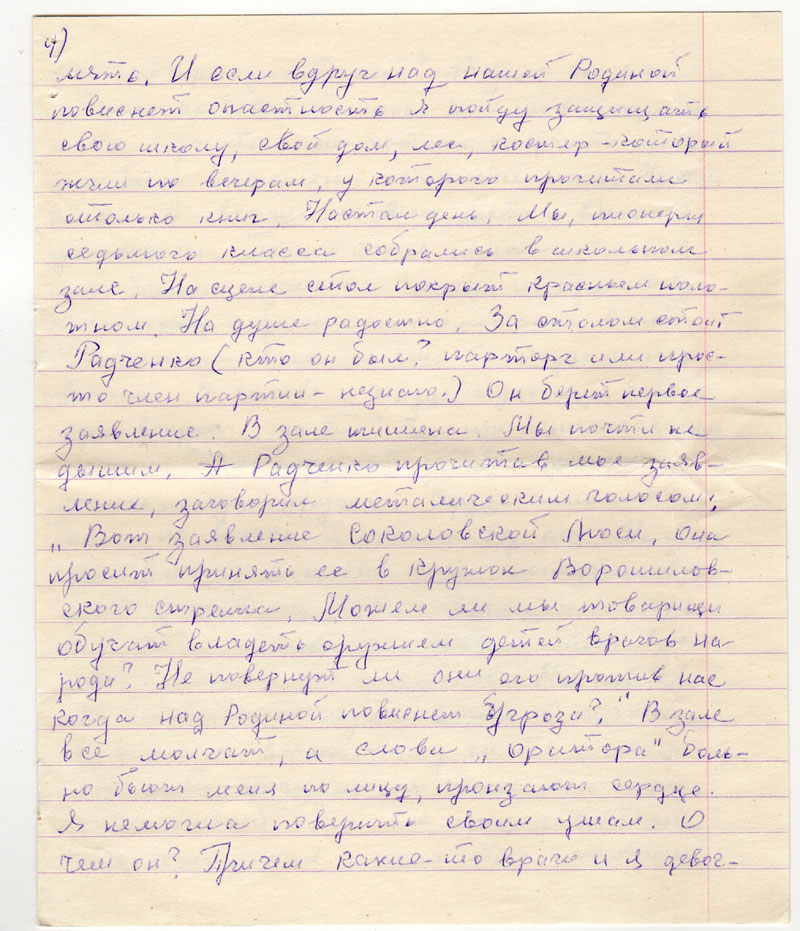 4)
мять. И если вдруг над нашей Родиной
повиснет опастность я пойду защищать
свою школу, свой дом, лес, костер - который
жгли по вечерам, у которого прочитали
столько книг. Настал день. Мы, пионеры
седьмого класса собрались в школьном
зале. На сцене стол покрыт красным поло-
тном. На душе радостно. За столом стоит
Радченко (кто он был? парторг или прос-
то член партии - незнаю.) Он берет первое
заявление. В зале тишина. Мы почти не
дышим. А Радченко прочитав мое заяв-
ление, заговорил металическим голосом:
„Вот заявление Соколовской Люси, она
просит принять ее в кружок Ворошилов-
ского стрелка. Можем ли мы товарищи
обучат владеть оружием детей врагов на-
рода? Не повернут ли они его против нас
когда над Родиной повиснет Угроза?." В зале
все молчат, а слова „оратора" боль-
но бьют меня по лицу, пронзают сердце.
Я немогла поверить своим ушам. О
чем он? Причем какие-то враги и я девоч-